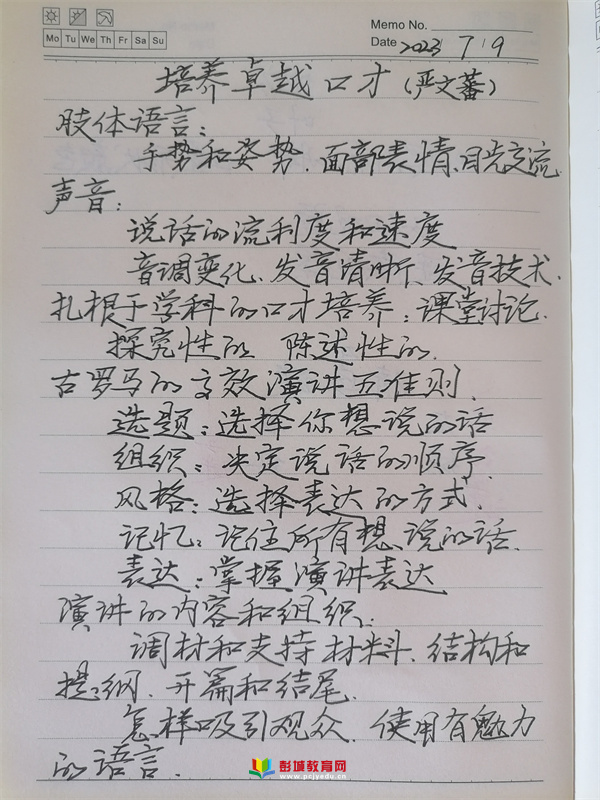 Memo No.
Mo Tu We Th Fr Sa Su
Date 2023 7/9
培养卓越口才(严文蕃)
肢体语言:
手势和姿势、面部表情、目光交流
声音:
说话的流利度和速度
音调变化、发音清晰、发音技术.
扎根于学科的口才培养:课堂讨论.
探究性的 陈述性的.
古罗马的高效演讲五准则.
选题:选择你想说的话
组织:决定说话的顺序.
风格:选择表达的方式.
记忆:记住所有想说的话.
表达:掌握演讲表达
演讲的内容和组织.
调材和支持材料、结构和
提纲、开篇和结尾.
怎样吸引观众、使用有魅力
的语言.
彭城教育网
www.pcjyedu.cn